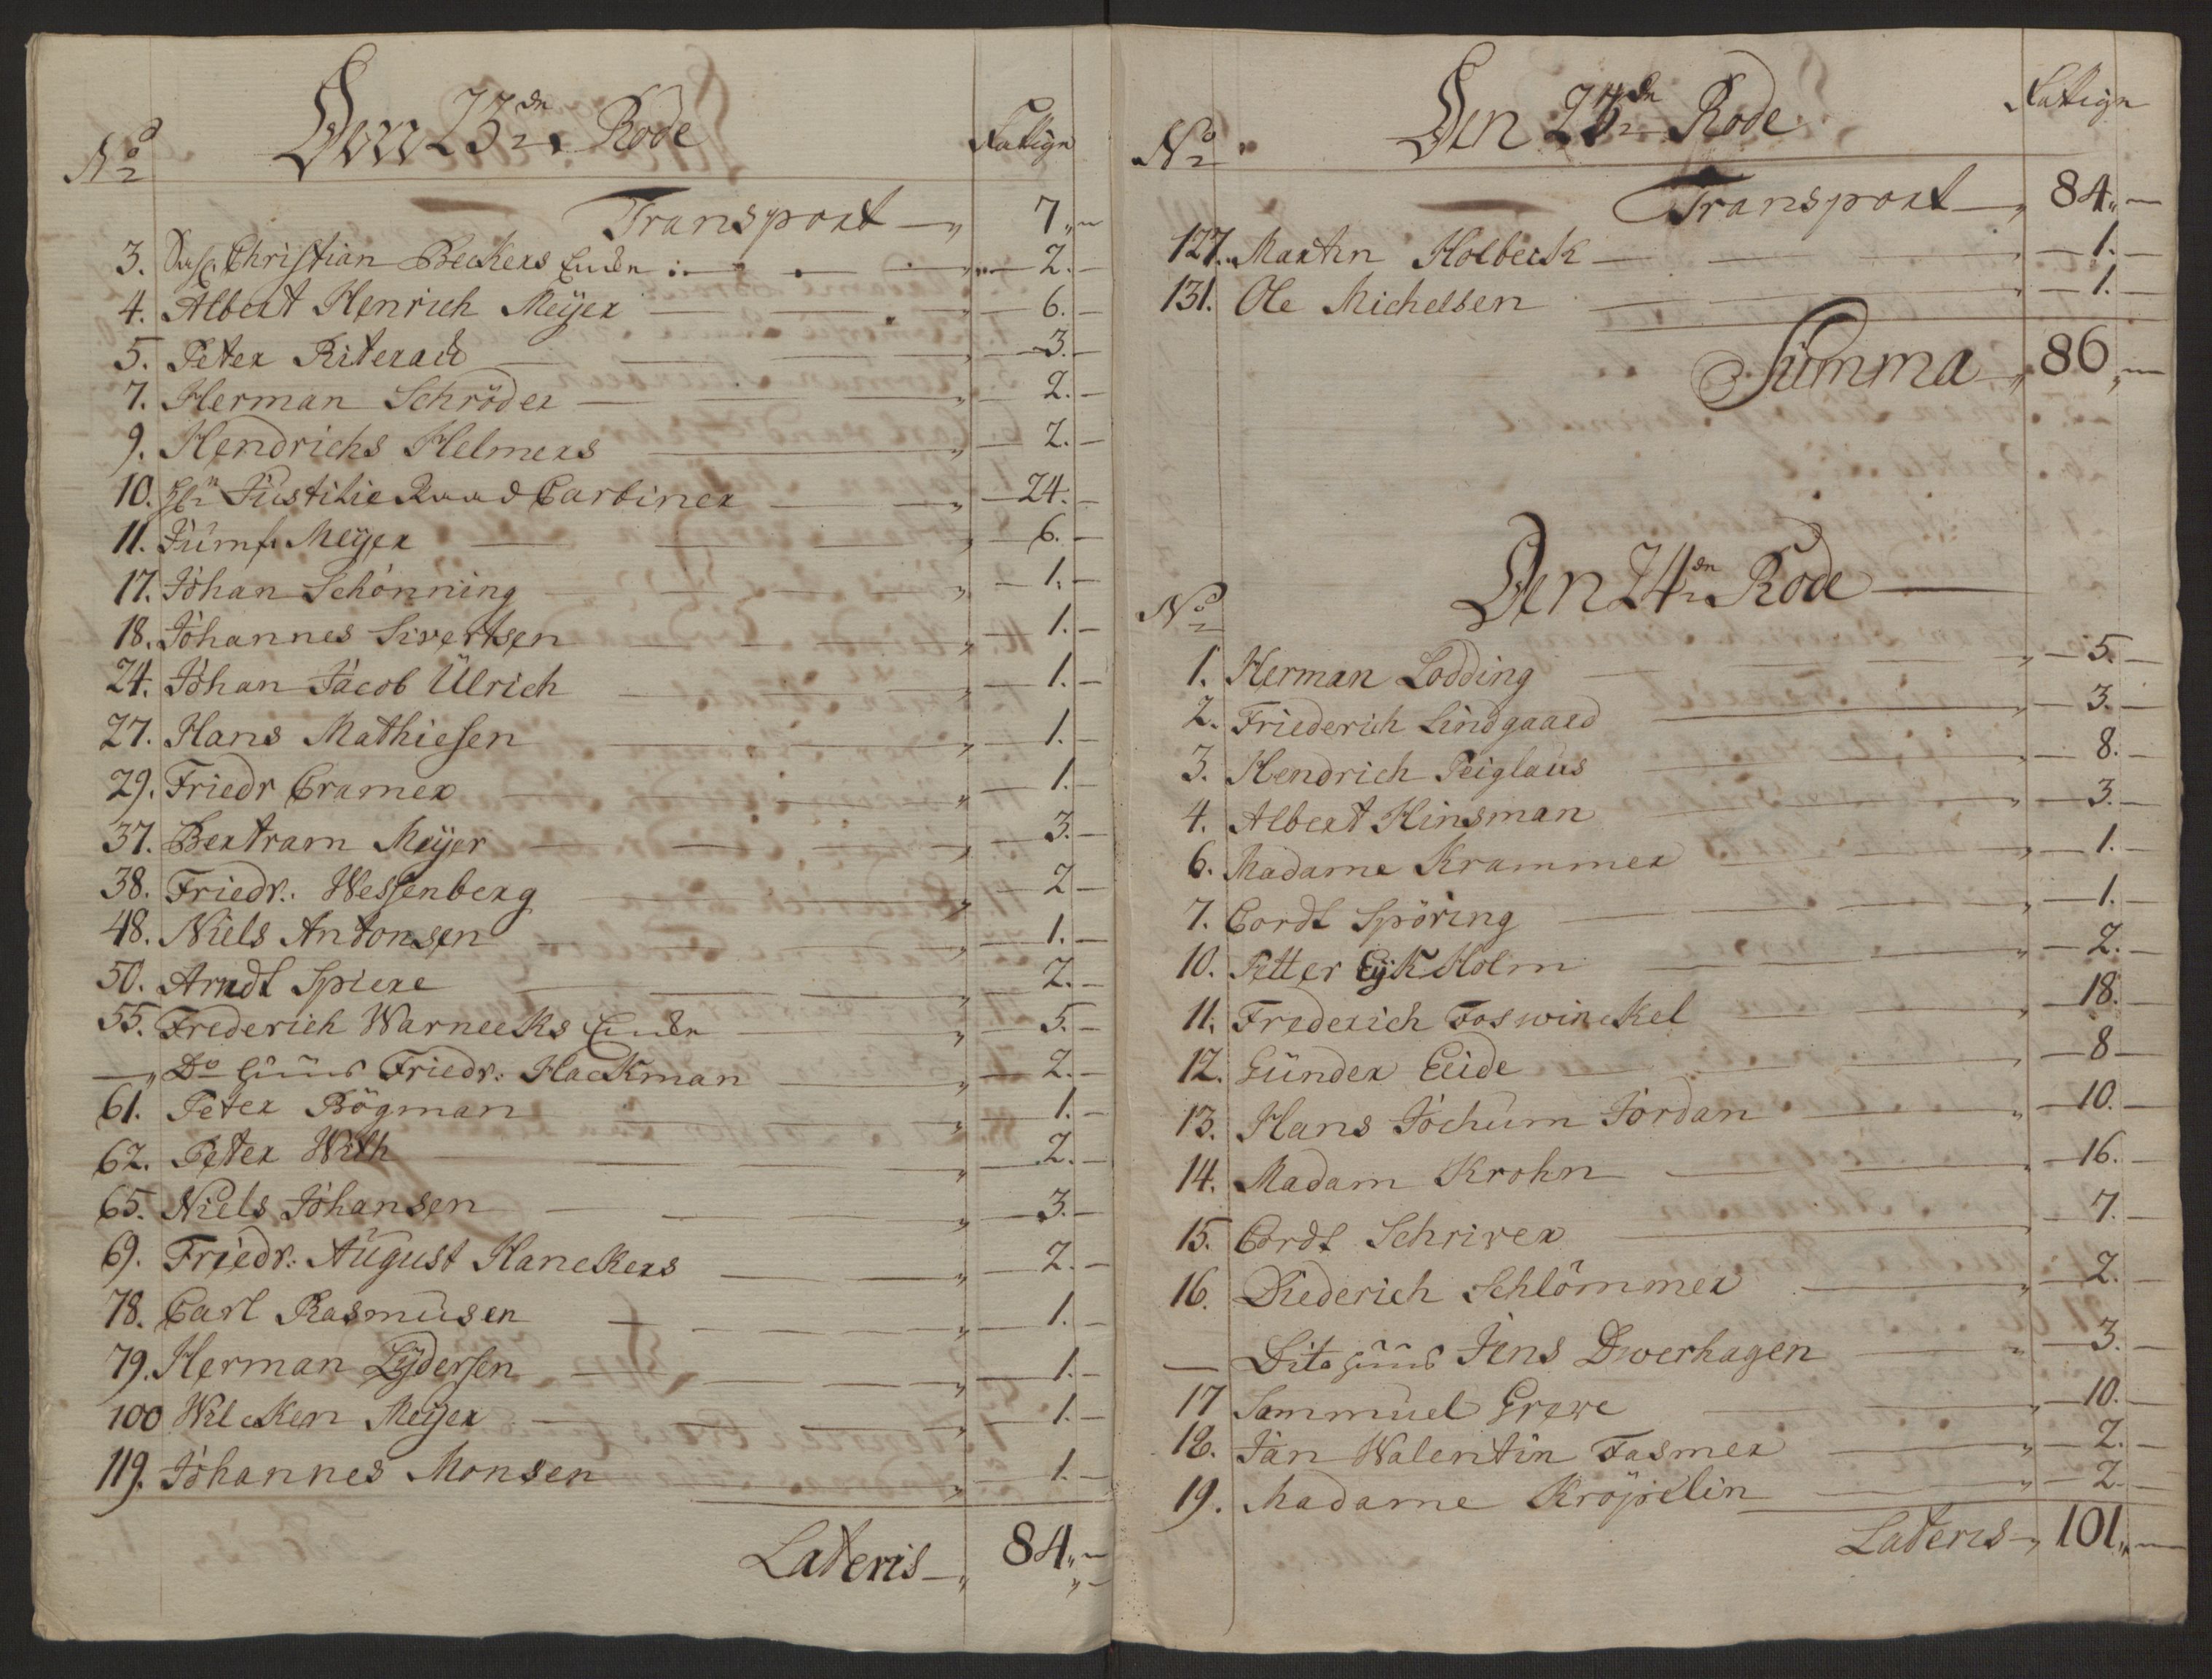 Den 23de Rode
No
Fattige
Transport 7
3. Sahl. Christian Beckers Encke 2.
4. Albert Henrich Meyer 6.
5. Peter 3.
7. Herman Schröder 2.
9. Hendrichs Helmers 2.
10. Hr Justitie Raad Carbiner 24.
11. Jumfr Meyer 6.
17. Johan Schönning 1.
18. Johannes Sivertsen 1.
24. Johan Jacob Ülrich 1.
27. Hans Mathiesen 1.
29. Friedr Cramer 1.
37. Bertram Meyer 3.
38. Friedr. Wessenberg 2
48. Niels Antonsen 1.
50. Arndt Spiere 2.
55. Frederich Warnecks Encke 5.
— Do Huus Friedr: Hackman 2.
61. Peter Bögman 1.
62. Peter With 2.
65. Niels Johansen 3.
69. Friedr: August Hanckers 2.
78. Carl Rasmusen 1.
79. Herman Lydersen 1.
100 Wilcken Meyer 1.
119. Johannes Monsen 1.
Lateris 84
Den 23de Rode
No
Fattige
Transport 84
127. Martin Holbeck 1.
131. Ole Michelsen 1.
Summa 86
Den 24de Rode
No
1. Herman Lodding 5.
2. Friederich Lindgaard 3.
3. Hendrich Peiglaus 8.
4. Albert Hinsman 3.
6. Madame Krammer 1.
7. Cordt Spöring 1.
10. Petter Eyk Holm 2.
11. Frederich Foswinckel 18.
12. Günder Eide 8
13. Hans Jochum Jordan 10.
14. Madam Krohn 16.
15. Cordt Schriver 7.
16. Diederich Schlömmer 2.
— Dito Huus Jens Dwerhagen 3.
17 Sammuel Greve 10.
18. Jan Walentin Fasmer 2.
19. Madame Kröpelin 2.
Lateris 101